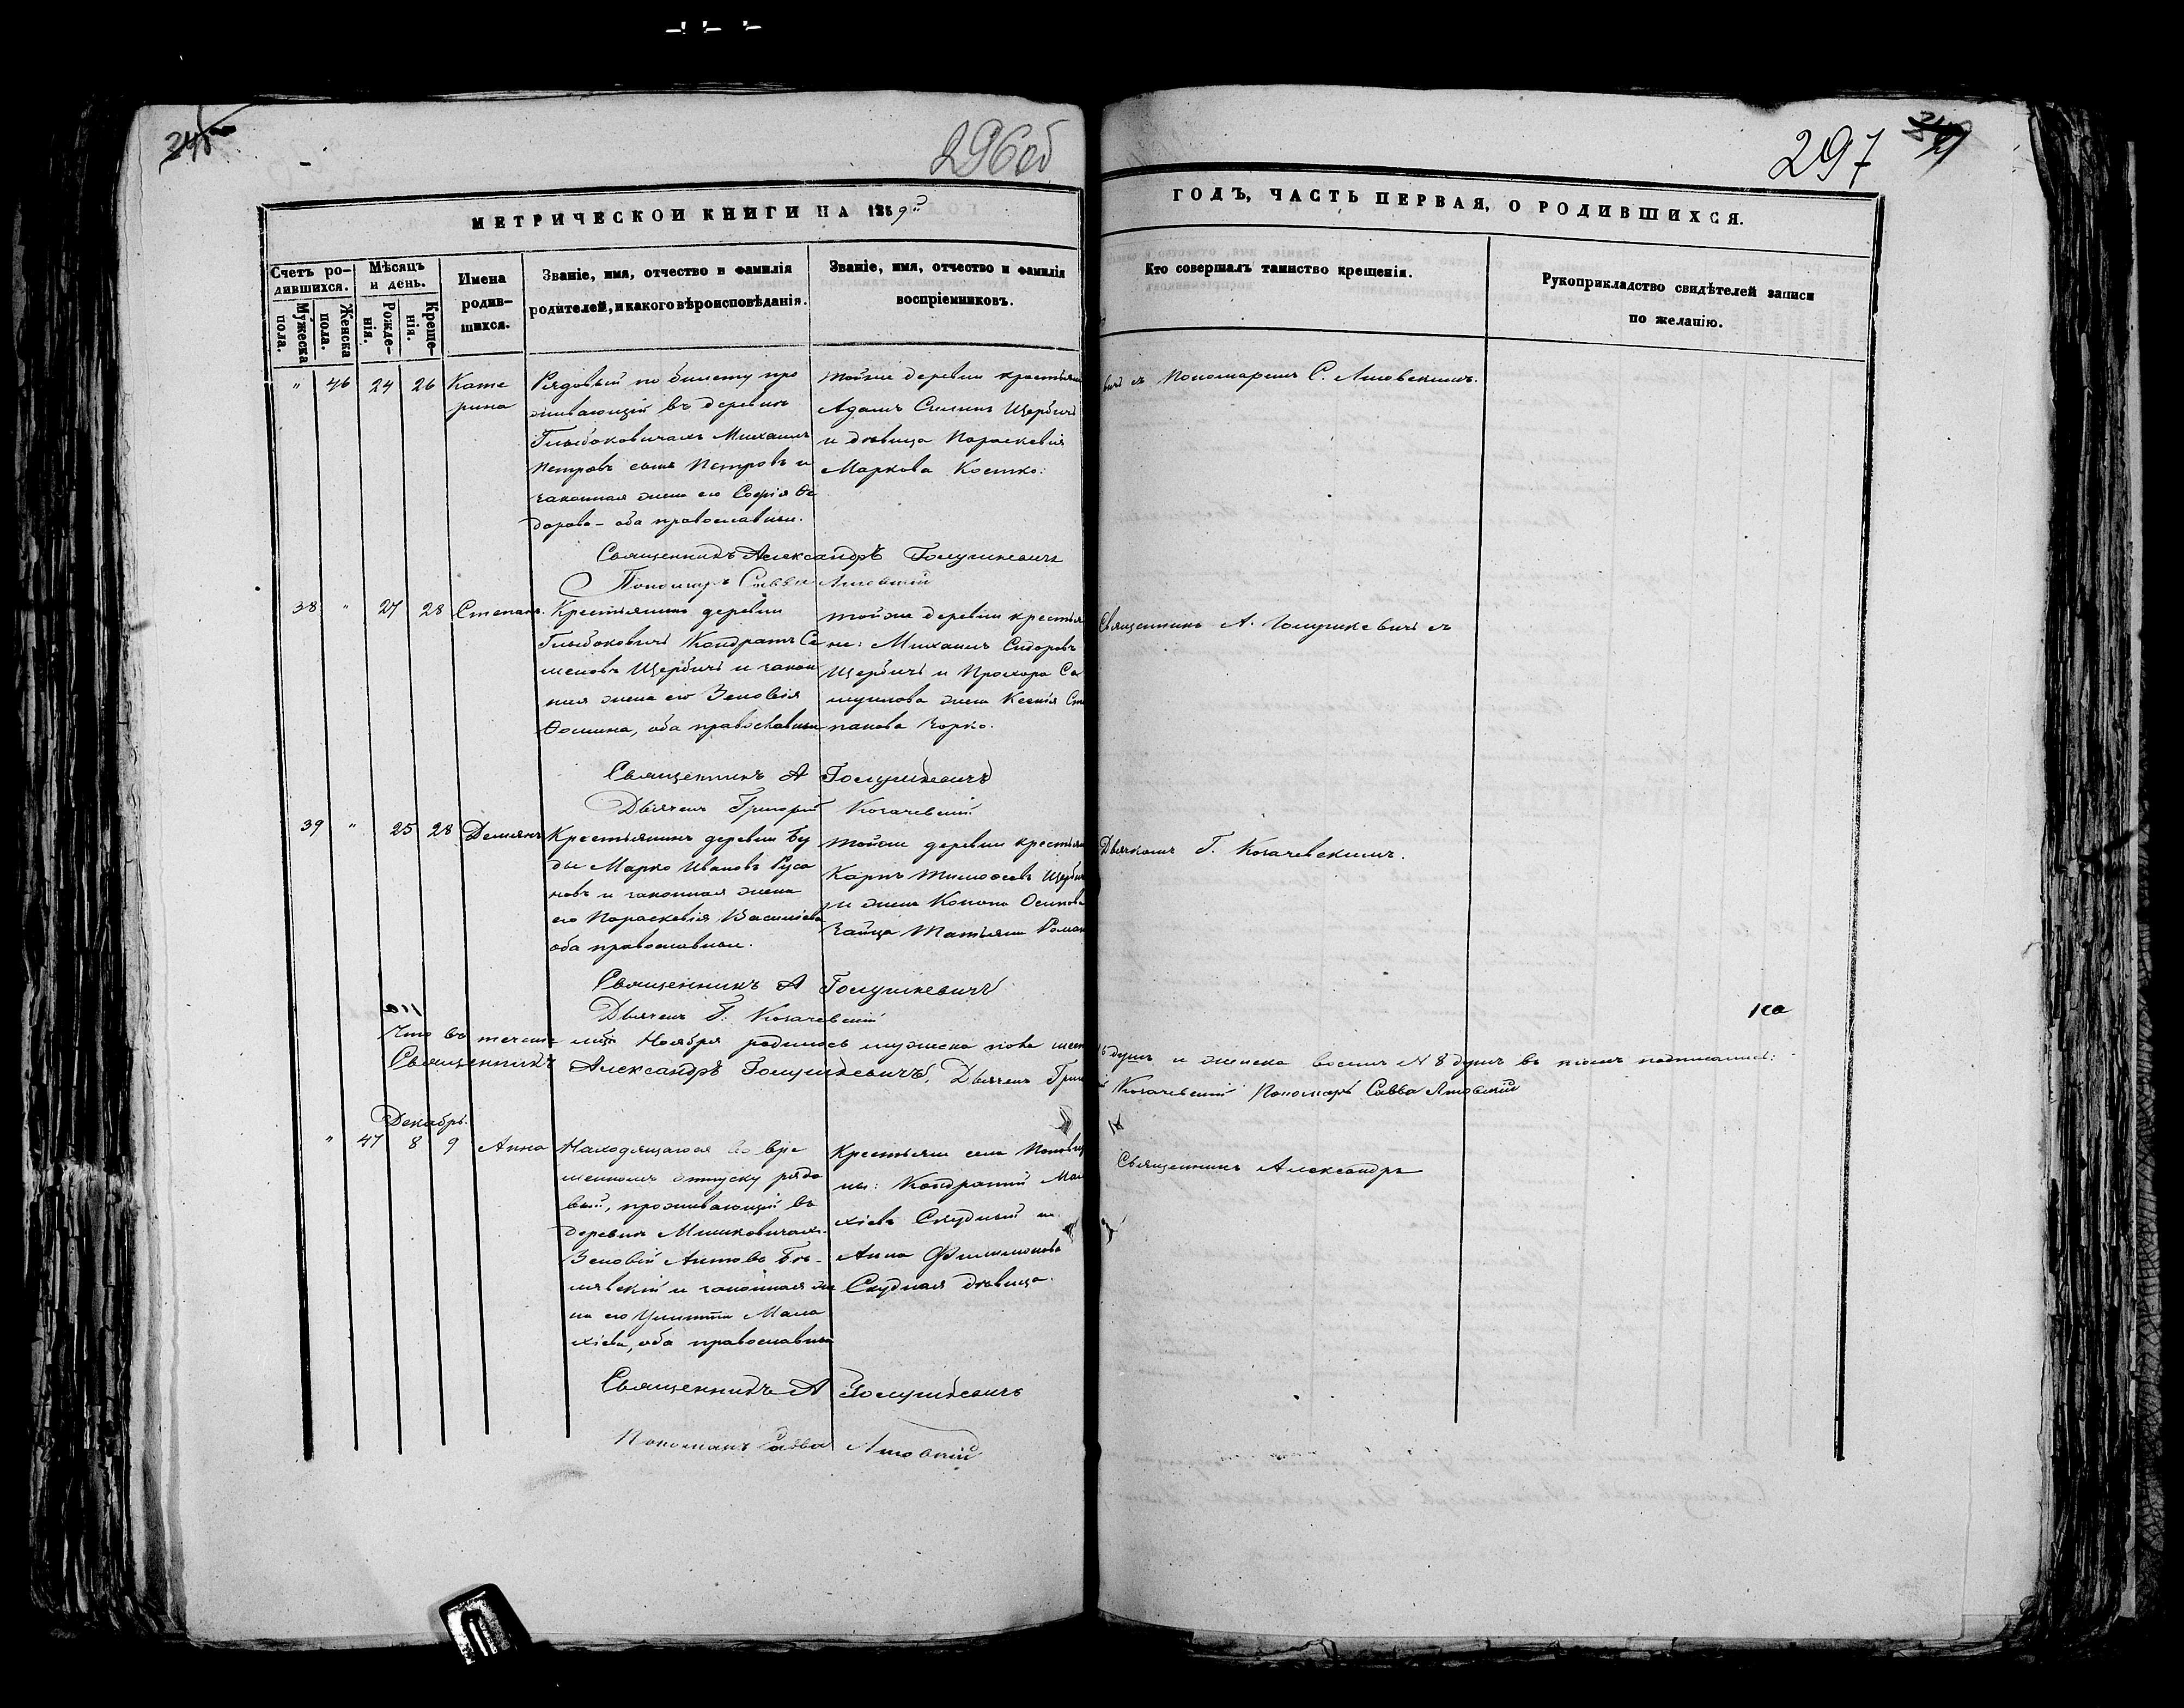 296об
297
МЕТРИЧЕСКОЙ КНИГИ НА 1859й
ГОДЪ, ЧАСТЬ ПЕРВАЯ, О РОДИВШИХСЯ.
Счетъ ро-
дившихся.
Мужеска пола.
Женска пола.
Мѣсяцъ
и день.
Рожде-
нія.
Креще-
нія.
Имена
родив-
шихся.
Званіе, имя, отчество и фамилія
родителей, и какого вѣроисповѣданія.
Званіе, имя, отчество и фамилія
воспріемниковъ.
Кто совершалъ таинство крещенія.
Рукоприкладство свидѣтелей записи
по желанію.
" 46 24 26 Кате
рина
Рядовый по билету про
живающій въ деревнѣ
Глыбоковичахъ Михаилъ
Петровъ сынъ Петровъ и
законная жена его Софія Ѳе
дорова - оба православные.
тойже деревни крестьяне
Адамъ Щербичъ
и дѣвица Параскевія
Маркова Костко:
съ Пономаремъ С. Лиовскимъ.
Священникъ Александръ Голушкевичъ
Пономарь Савва
38 " 27 28 Степанъ.
Крестьянинъ деревни
Глыбоковичъ Кондратъ Се
меновъ Щербичъ и закон
ная жена его Зеновія
Ѳомина, оба православные
тойже деревни крестья
не: Михаилъ Сидоровъ
Щербичъ и Прохора Са
муилова жена Ксенія Сте
панова Зорко.
Священникъ А. Голушкевичъ съ
Священникъ А Голушкевичъ
Дьячекъ Григорій Козачевскій
39 " 25 28 Демьянъ
Крестьянинъ деревни Бу
ды Марко Ивановъ Руса
новъ и законная жена
его Параскевія Васильева
оба православные.
тойже деревни крестьяне
Карпъ Тимоѳеевъ Щербичъ
и жена Конона Осипова
Зайца Татьяна Роман
Дьячкомъ Г. Козачевскимъ.
Священникъ А Голушкевичъ
Дьячекъ Г. Козачевскій
Что въ теченіе мца Ноября родилось мужеска пола душъ и женска восемь № 8 душъ въ томъ подписались:
Священникъ Александръ Голушкевичъ, Дьячекъ Козачевскій Пономарь Савва
Декабрь.
" 47 8 9 Анна
Находящагося во вре
менномъ отпуску рядо
вый, проживающій въ
деревнѣ Мишковичахъ
Зеновій Антовъ Бѣ-
лявскій и законная же
на его Улита Мала
хіева, оба православные
Крестьяне села
ны: Кондратій Мала
хіевъ Скудный и
Анна Филимонова
Скудная дѣвица.
Священникъ Александръ
Священникъ А Голушкевичъ
Пономарь Савва